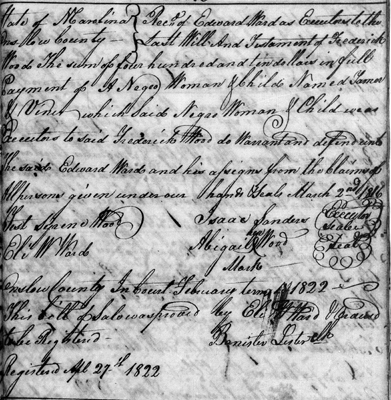 State of N Carolina } Recd of Edward Ward as Executors to the
Onslow County } Last Will And Testament of Frederick
Wood The sum of four hundred and ten dollars in full
Payment of A Negro Woman & Child Named
& Vines which Said Negro Woman & Child we as
Executors to said Frederick Wood do Warrant and defend unto
The said Edward Ward and his assigns from the Claims of
All persons given under our hands & Seals March 2nd
Test Wood Isaac Sanders
Eli W Ward Abigail Wood Seal
Mark
Onslow County In Court February term 1822
This bill of Sale was proved by Eli W Ward & Ordered
to be Registered Banister Lester
Registered Apl 27th 1822